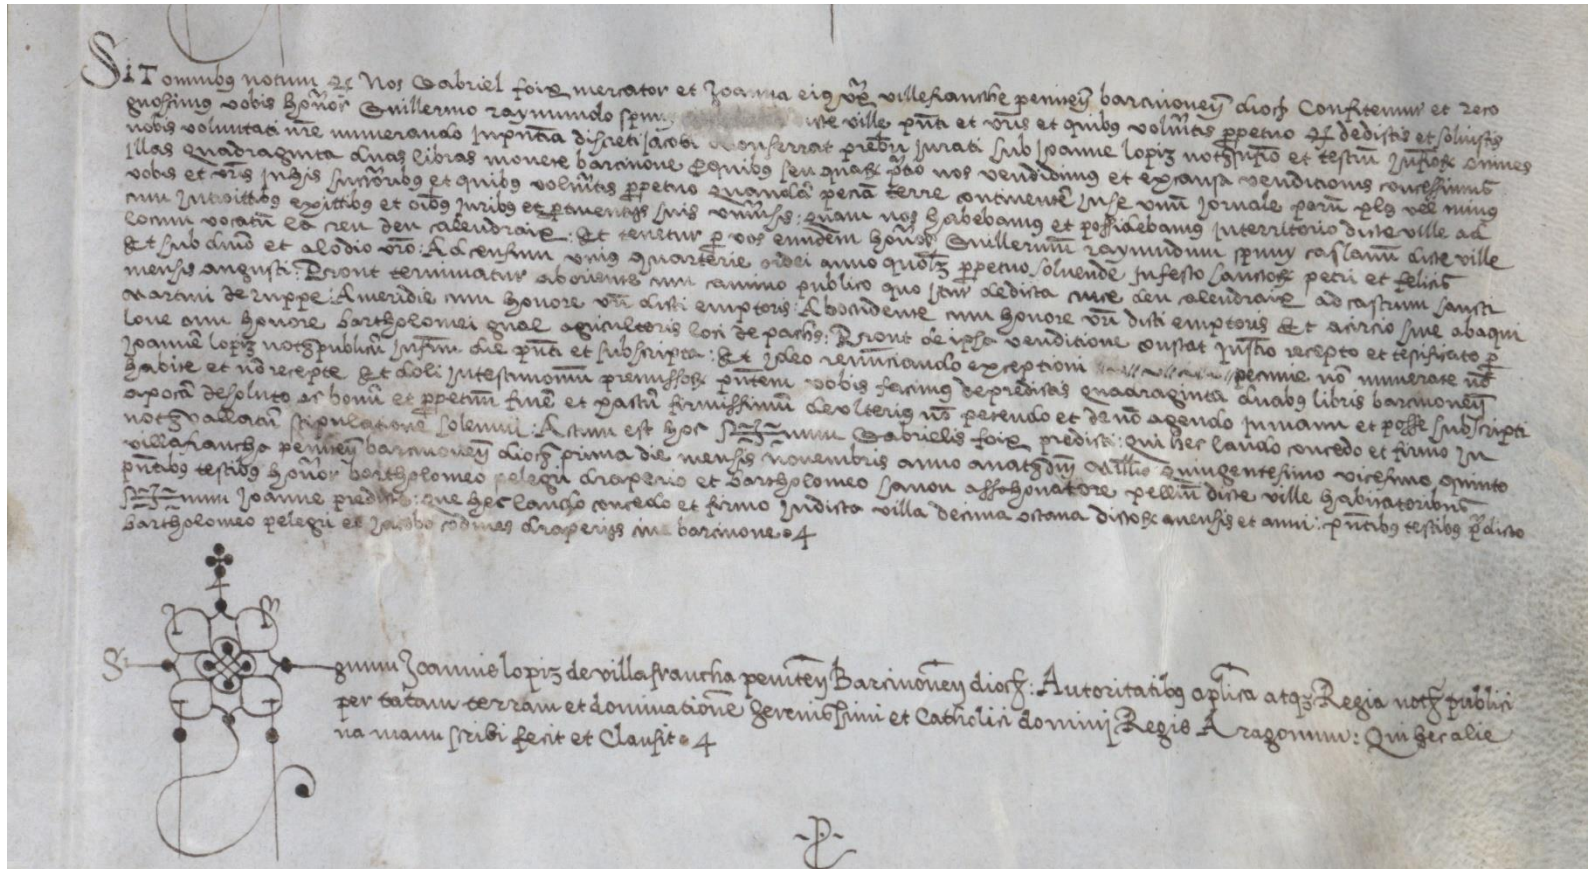 Sit omnibus notum &c Nos Gabriel foix mercator et Joanna eius uxr villefranche peniteñ barcinoneñ dioc Confitemur et reco
gnoscimus vobis honor Guillermo raymundo spuny dicte ville pnti et vris et quibus volueritis perpetuo &c dedistis et solvistis
nobis voluntati nre numerando In pntia discreti Jacobi Monserrat prebri Jurati sub Joanne lopiz noth Infro et testiu Infror omnes
Illas quadraginta duas libras monete barcinone Ex quibus seu quar pcio nos vendidimus et ex causa venditionis concessimus
vobis et vris In his successoribus et quibus volueritis perpetuo quandam peciam terre continentem In se unum Jornale parum pls vel minus
cum Introitibus exitibus et oibus Juribus et pertinentijs suis universis: quam nos habebamus et possidebamus In territorio dicte ville ad
locum vocatu la creu den calendraix: Et tenetur per vos eundem honor Guillermum raymundum spuny castlanum dicte ville
Et sub dnio et alodio vro: Ad censum unius quarterie ordei anno quolz perpetuo solvende In festo sanctor petri et felicis
mensis augusti: Pront terminatur ab oriente cum camino publico quo Itur de dicta cruce den calendraix ad castrum sancti
Martini de ruppe: A meridie cum honore vri dicti emptoris: Ab occidente cum honore vri dicti emptoris Et a circio sive ab aqui
lone cum honore bartholomei gual agricultoris loci de pachs: Pront de ipsa venditione constat Instro recepto et testificato per
Joanne lopiz noth publicu Infrm die pnti et subscripta: Et Ideo renunciando exceptioni pecunie no numerate no
habite et no recepte Et doli In testimonium premissor pntem vobis facimus de predictis quadraginta duabus libris barcinoneñ
apocam de soluto ac bonu et perpetuum fine et pactu firmissimu de ulterius no petendo et de no agendo In manu et posse subscripti
noth vallatam stipulatione solemni: Actum est hoc Sig+num Gabrielis foix predicti: qui hec laudo concedo et firmo In
villafrancha peniteñ barcinoneñ dioc prima die mensis novembris anno a nath dni Millio quingentesimo vicesimo quinto
pntibus testibus honor bartholomeo pelegri draperio et bartholomeo sanou assahonatore pelliu dicte ville habitatoribus
Sig+num Joanne predicte: que hec laudo concedo et firmo In dicta villa decima octava dictor mensis et anni: pntibus testibus pdicto
bartholomeo pelegri et Jacobo codines draperijs barcinone
Sig
gnum Joannis lopiz de villafrancha peniteñ Barcinoneñ dioc: Autoritatibus aplica atqz Regia noth publici
per totam terram et dominatione Serenissimi et Catholici dominj Regis Aragonum: Qui hec alie
na manu scribi fecit et Clausit